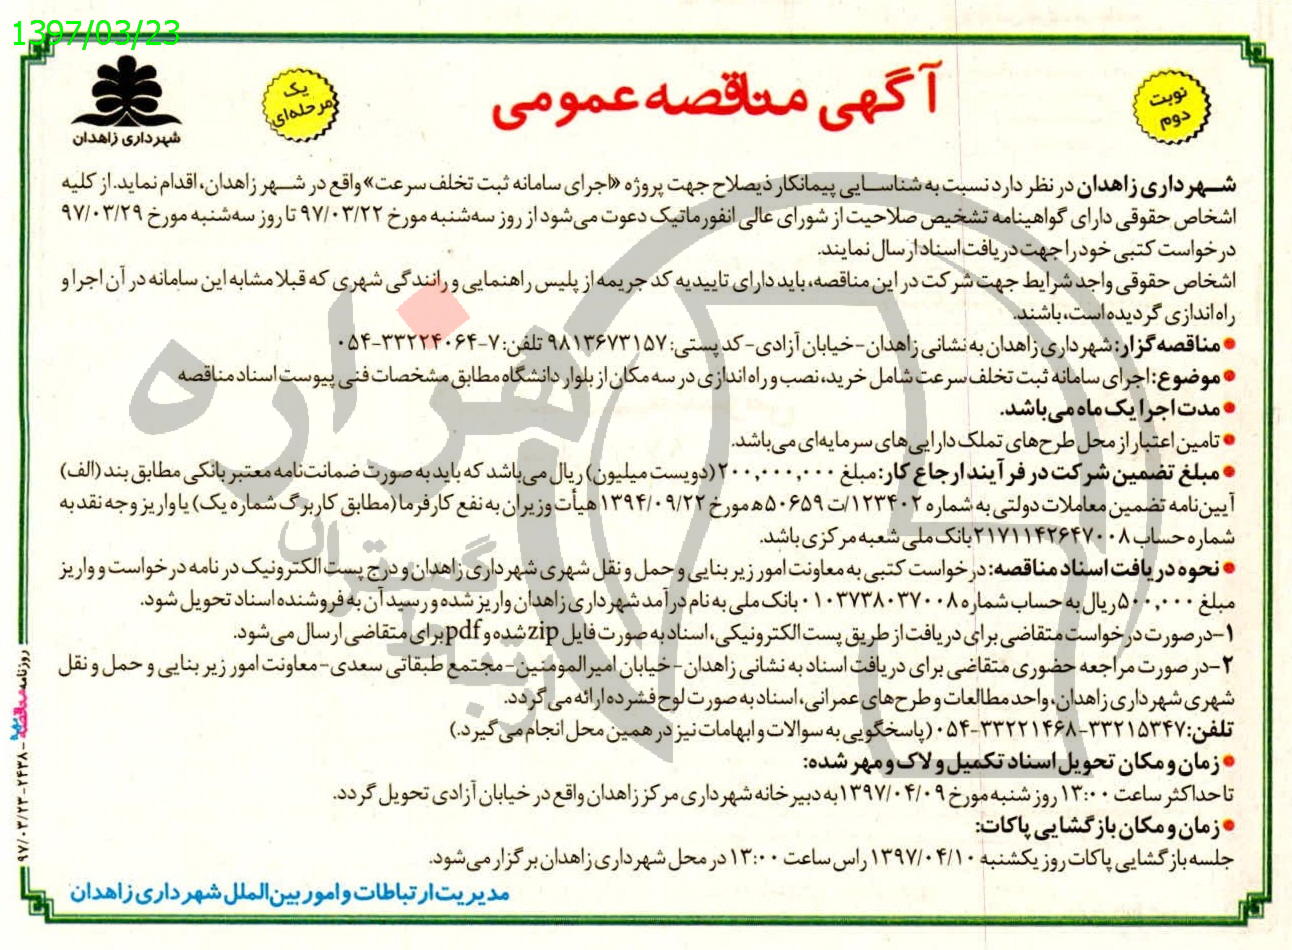 1397/03/23
نوبت دوم
آگهی مناقصه عمومی
یک مرحله‌ای
شهرداری زاهدان
شهرداری زاهدان در نظر دارد نسبت به شناسایی پیمانکار ذیصلاح جهت پروژه «اجرای سامانه ثبت تخلف سرعت» واقع در شهر زاهدان، اقدام نماید. از کلیه
اشخاص حقوقی دارای گواهینامه تشخیص صلاحیت از شورای عالی انفورماتیک دعوت می‌شود از روز سه‌شنبه مورخ ۹۷/۰۳/۲۲ تا روز سه‌شنبه مورخ ۹۷/۰۳/۲۹
درخواست کتبی خود را جهت دریافت اسناد ارسال نمایند.
اشخاص حقوقی واجد شرایط جهت شرکت در این مناقصه، باید دارای تاییدیه کد جریمه از پلیس راهنمایی و رانندگی شهری که قبلا مشابه این سامانه در آن اجرا و
راه‌اندازی گردیده است، باشند.
● مناقصه‌گزار: شهرداری زاهدان به نشانی زاهدان-خیابان آزادی-کد پستی: ۹۸۱۳۶۷۳۱۵۷ تلفن: ۷-۳۳۲۲۴۰۶۴-۰۵۴
● موضوع: اجرای سامانه ثبت تخلف سرعت شامل خرید، نصب و راه‌اندازی در سه مکان از بلوار دانشگاه مطابق مشخصات فنی پیوست اسناد مناقصه
● مدت اجرا یک ماه می‌باشد.
● تامین اعتبار از محل طرح‌های تملک دارایی‌های سرمایه‌ای می‌باشد.
● مبلغ تضمین شرکت در فرآیند ارجاع کار: مبلغ ۲۰۰,۰۰۰,۰۰۰ (دویست میلیون) ریال می‌باشد که باید به صورت ضمانت‌نامه معتبر بانکی مطابق بند (الف)
آیین‌نامه تضمین معاملات دولتی به شماره ۱۲۳۴۰۲/ت ۵۰۶۵۹ ه‍ مورخ ۱۳۹۴/۰۹/۲۲ هیأت وزیران به نفع کارفرما (مطابق کاربرگ شماره یک) یا واریز وجه نقد به
شماره حساب ۲۱۷۱۱۴۲۶۴۷۰۰۸ بانک ملی شعبه مرکزی باشد.
● نحوه دریافت اسناد مناقصه: درخواست کتبی به معاونت امور زیربنایی و حمل و نقل شهری شهرداری زاهدان و درج پست الکترونیک در نامه درخواست و واریز
مبلغ ۵۰۰,۰۰۰ ریال به حساب شماره ۰۱۰۳۷۳۸۰۳۷۰۰۸ بانک ملی به نام درآمد شهرداری زاهدان واریز شده و رسید آن به فروشنده اسناد تحویل شود.
۱-در صورت درخواست متقاضی برای دریافت از طریق پست الکترونیکی، اسناد به صورت فایل zip شده و pdf برای متقاضی ارسال می‌شود.
۲-در صورت مراجعه حضوری متقاضی برای دریافت اسناد به نشانی زاهدان-خیابان امیرالمومنین-مجتمع طبقاتی سعدی-معاونت امور زیربنایی و حمل و نقل
شهری شهرداری زاهدان، واحد مطالعات و طرح‌های عمرانی، اسناد به صورت لوح فشرده ارائه می‌گردد.
تلفن: ۳۳۲۱۵۳۴۷-۳۳۲۲۱۴۶۸-۰۵۴ (پاسخگویی به سوالات و ابهامات نیز در همین محل انجام می‌گیرد.)
● زمان و مکان تحویل اسناد تکمیل و لاک و مهر شده:
تا حداکثر ساعت ۱۳:۰۰ روز شنبه مورخ ۱۳۹۷/۰۴/۰۹ به دبیرخانه شهرداری مرکز زاهدان واقع در خیابان آزادی تحویل گردد.
● زمان و مکان بازگشایی پاکات:
جلسه بازگشایی پاکات روز یکشنبه ۱۳۹۷/۰۴/۱۰ راس ساعت ۱۳:۰۰ در محل شهرداری زاهدان برگزار می‌شود.
مدیریت ارتباطات و امور بین‌الملل شهرداری زاهدان
روزنامه مناقصه مزایده - ۲۴۳۸ - ۹۷/۰۳/۲۳
هزاره
گستران
ارتباط